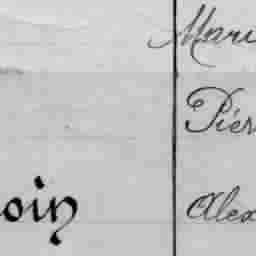 Mari
Piér
oin Alex